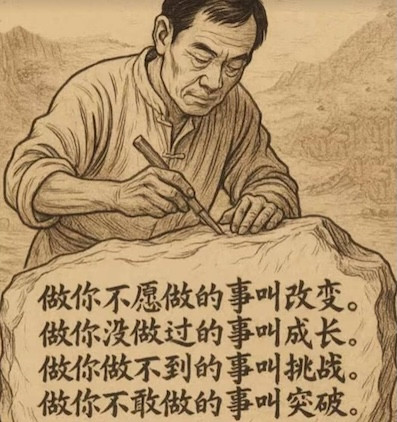 做你不愿做的事叫改变。
做你没做过的事叫成长。
做你做不到的事叫挑战。
做你不敢做的事叫突破。